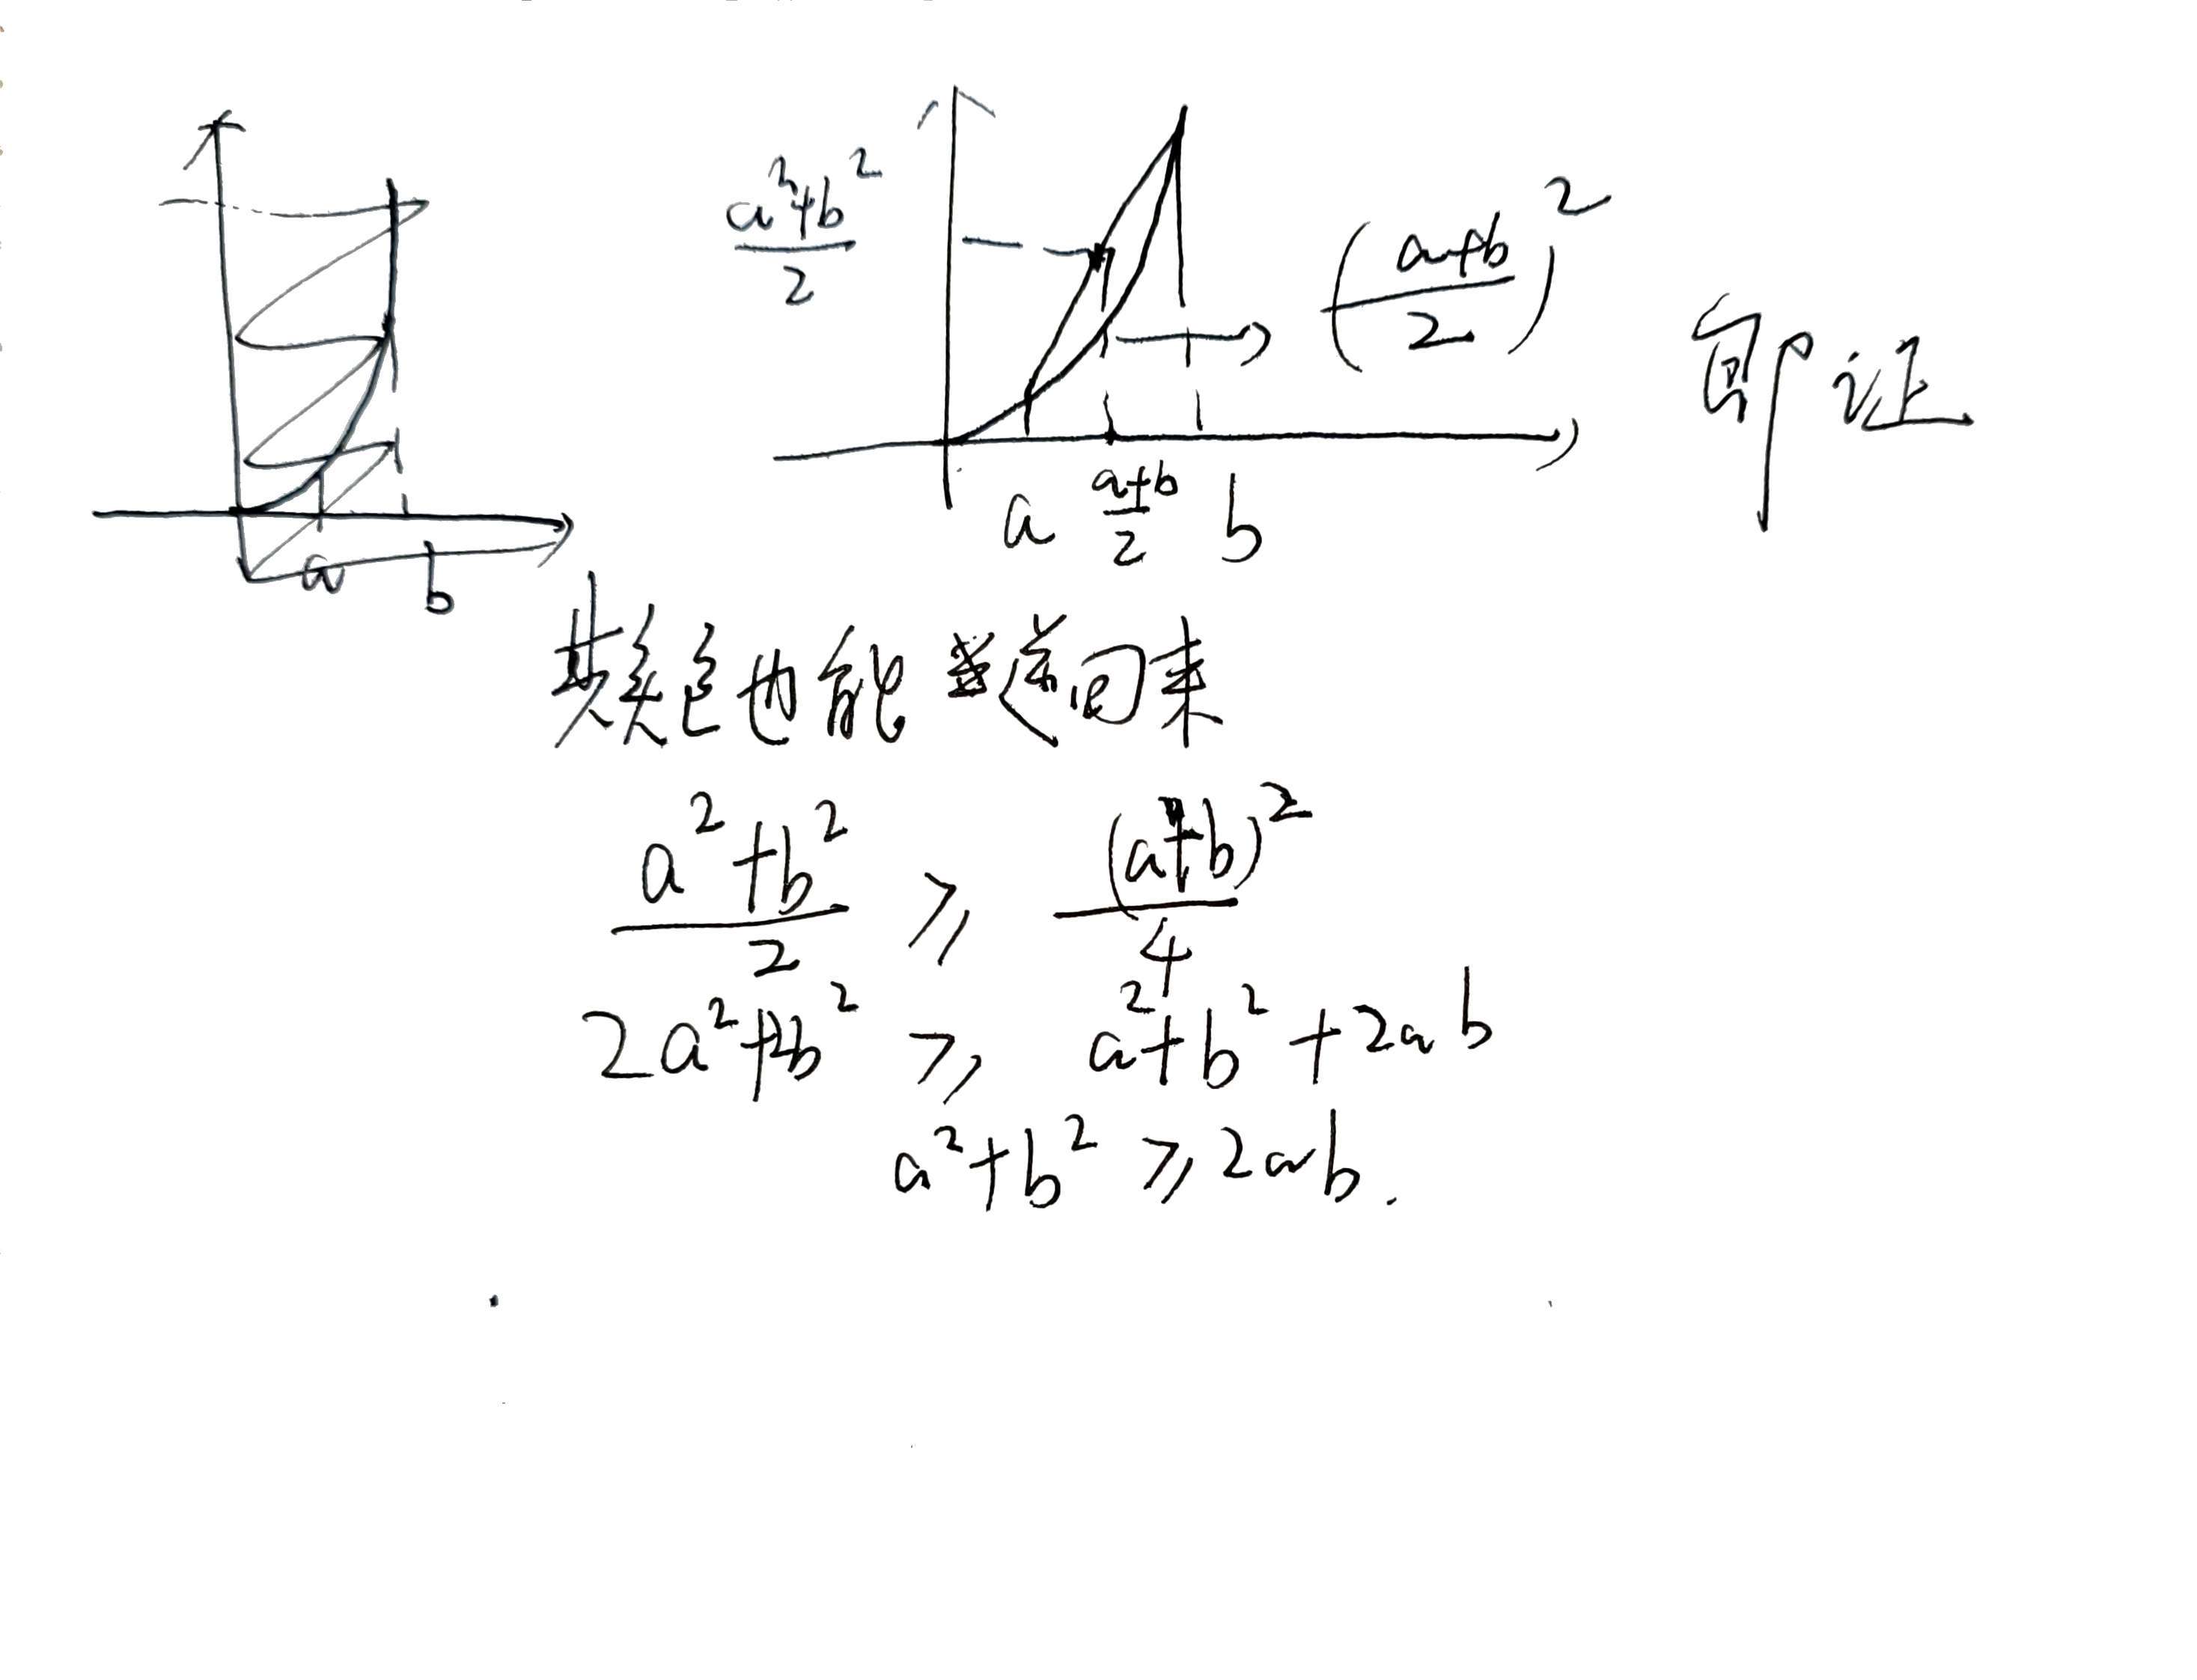 a²+b²/2
(a+b/2)²
即证
a a+b/2 b
a b
色也能 回来
a²+b²/2 ≥ (a+b)²/4
2a²+2b² ≥ a²+b²+2ab
a²+b² ≥ 2ab.